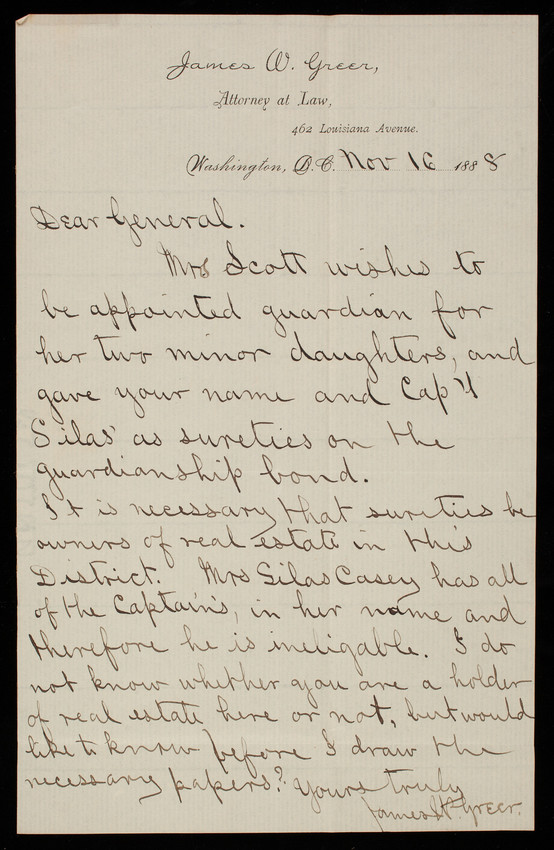 James W. Greer,
Attorney at Law,
462 Louisiana Avenue.
Washington, D.C. Nov 16 1888
Dear General.
Mrs Scott wishes to
be appointed guardian for
her two minor daughters, and
gave your name and Cap't
Silas' as sureties on the
guardianship bond.
It is necessary that sureties be
owners of real estate in this
District. Mrs Silas Casey has all
of the Captain's, in her name and
therefore he is ineligable. I do
not know whether you are a holder
of real estate here or not, but would
like to know before I draw the
necessary papers? Yours truly
James W. Greer.